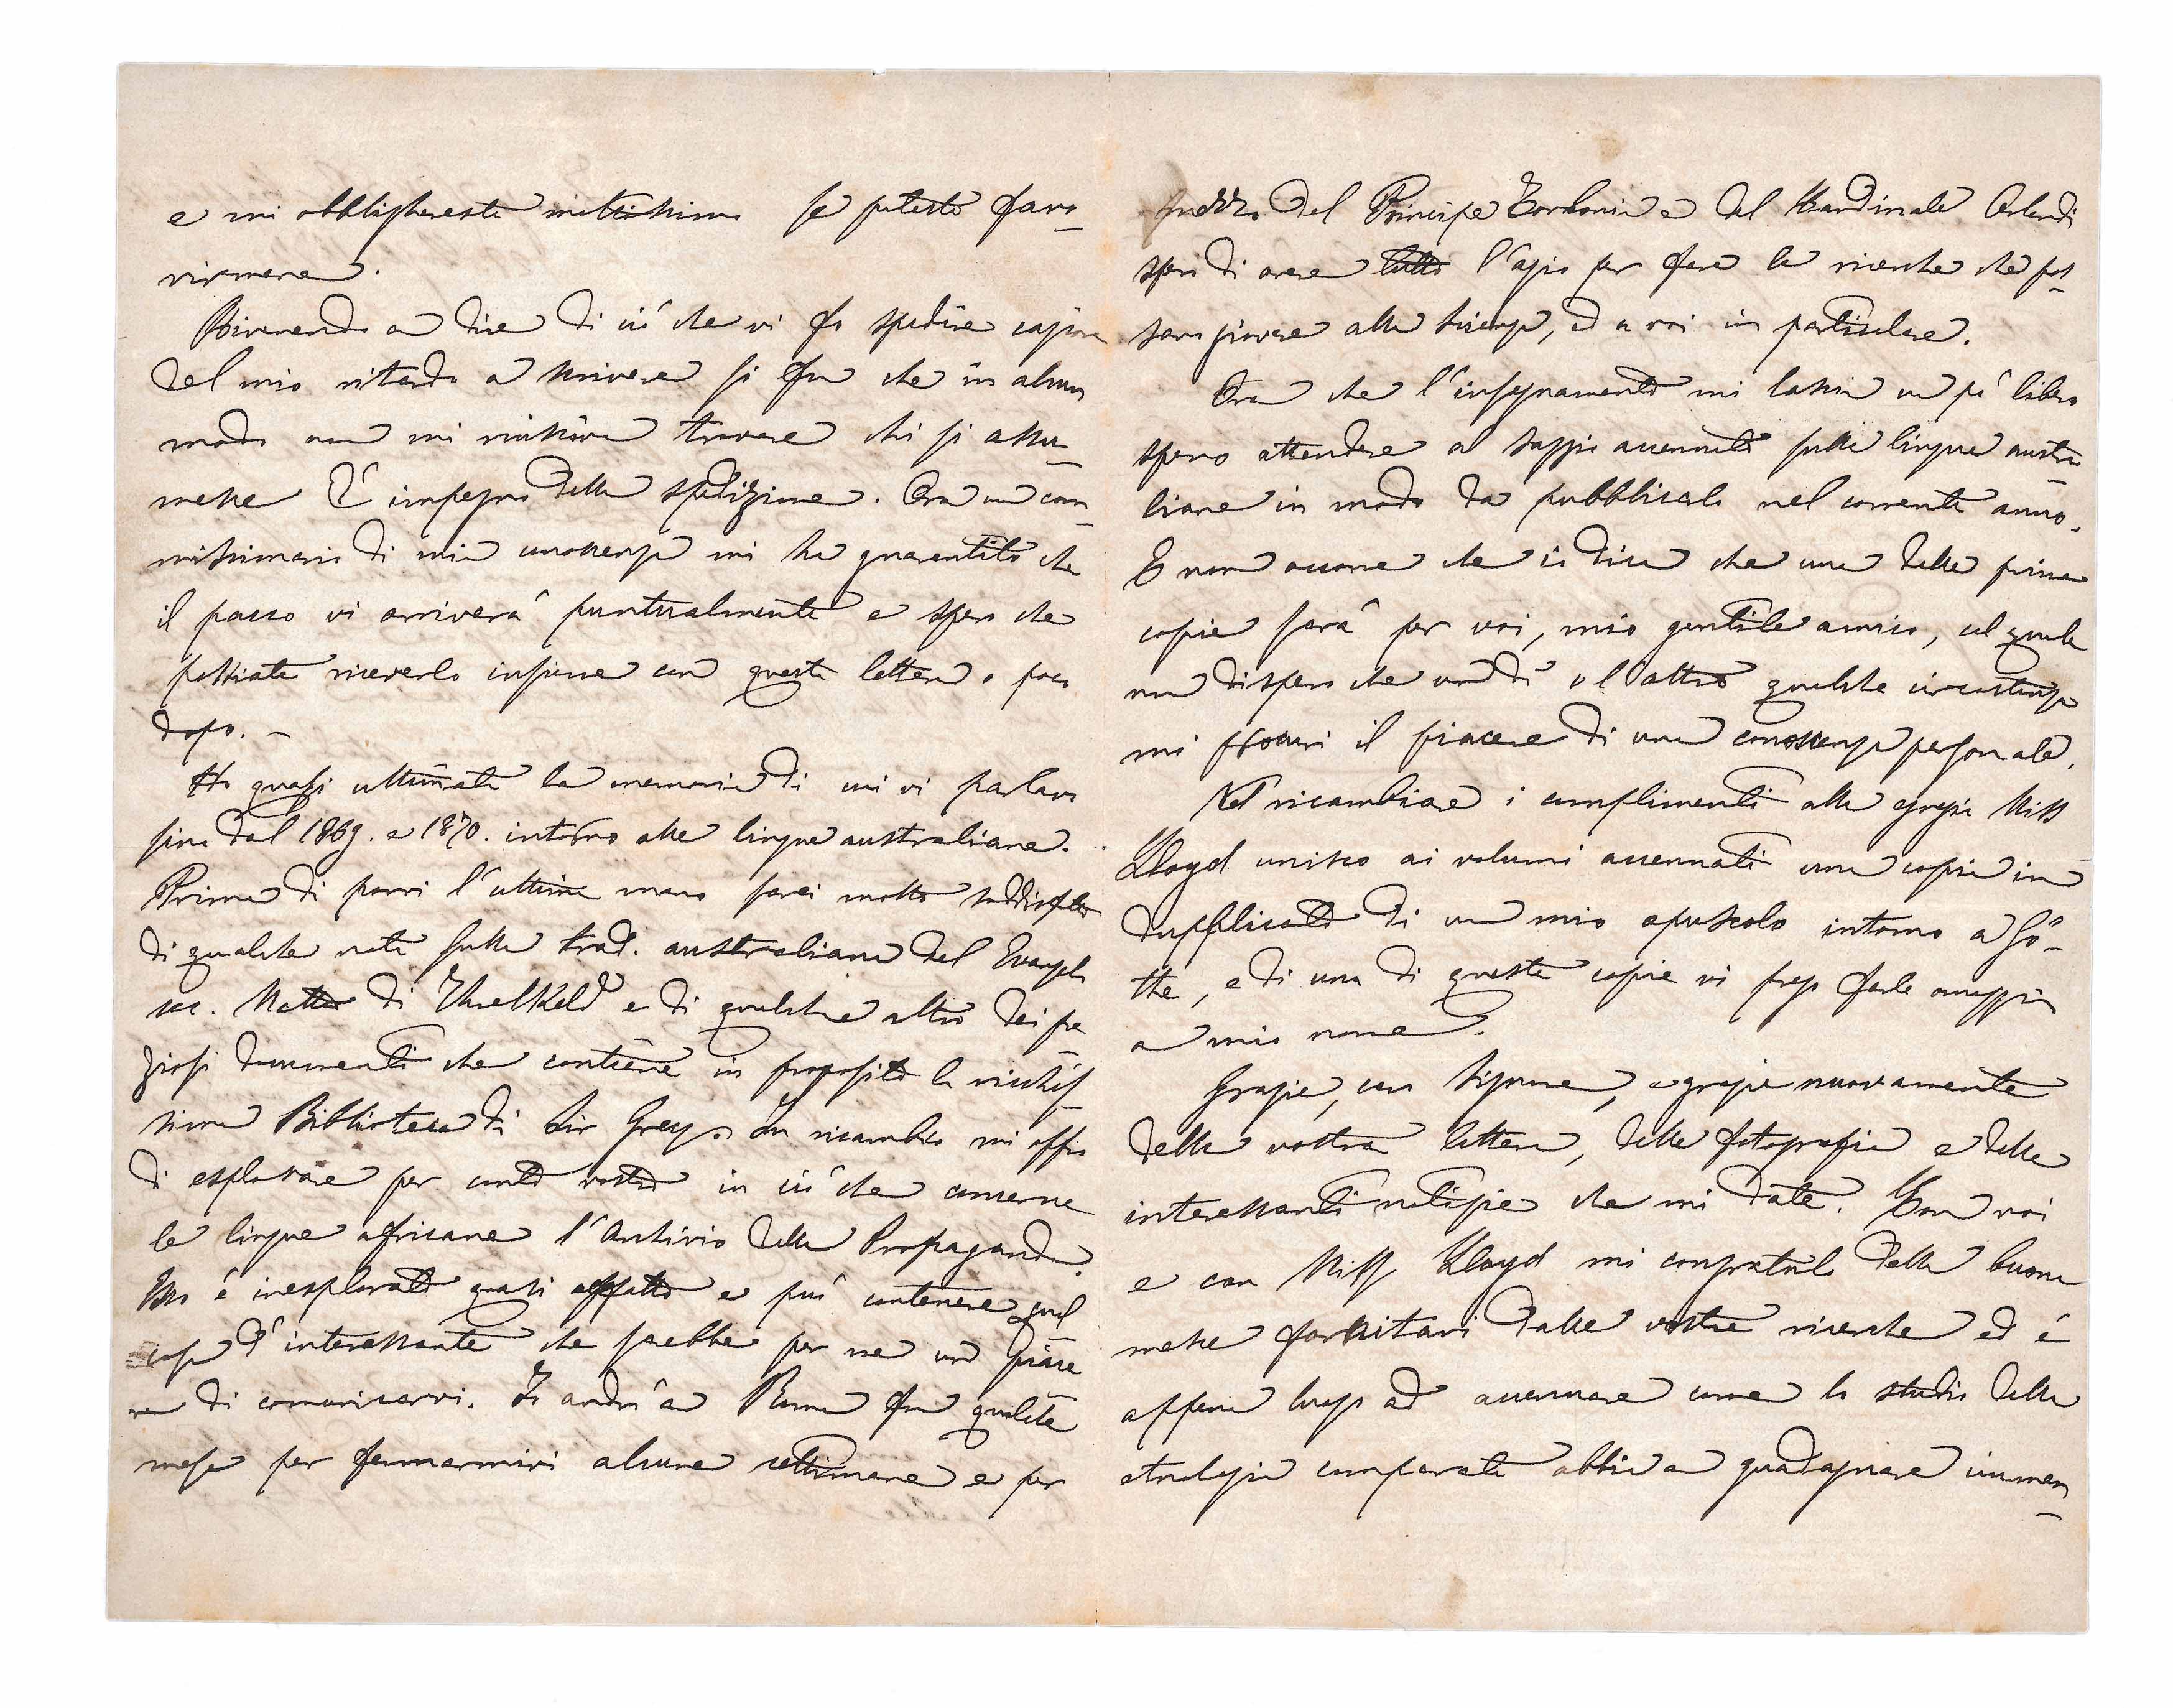 e mi obblighereste moltissimo se poteste favo-
rirmene.
Rivenendo a dire di ciò che vi fo spedire cagione
del mio ritardo a scrivere si fu che in alcun
modo non mi riusciva trovare chi si assu-
messe l'impegno della spedizione. Ora un com-
missionario di mia conoscenza mi ha guarentito che
il pacco vi arriverà puntualmente e spero che
possiate riceverlo insieme con questa lettera o poco
dopo. -
Ho quasi ultimata la memoria di cui vi parlavo
fino dal 1869. e 1870. intorno alle lingue australiane.
Prima di porvi l'ultima mano sarei molto soddisfatto
di qualche nota sulla trad. australiana del Evangelo
sec. Matteo di Threlkeld e di qualche altro dei pre
ziosi documenti che contiene in proposito la ricchis-
sima Biblioteca di Sir Grey. In ricambio mi offro
di esplorare per conto vostro in ciò che concerne
le lingue africane l'Archivio della Propaganda.
Esso è inesplorato quasi affatto e può contenere qual
cosa d'interessante che sarebbe per me un piace
re di comunicarvi. Io andrò a Roma fra qualche
mese per fermarmivi alcune settimane e per
mezzo del Principe Torlonia e del Kardinale
spero di avere tutto l'agio per fare le ricerche che pos-
sano giovare alla scienza, ed a voi in particolare.
Ora che l'insegnamento mi lascia un pò libero
spero attendere al saggio accennato sulle lingue austra
liane in modo da pubblicarlo nel corrente anno.
E non occorre che io dica che una delle prime
copie sarà per voi, mio gentile amico, col quale
non dispero che un dì o l'altro qualche circostanza
mi procuri il piacere di una conoscenza personale.
Nel ricambiare i complimenti alla egregia Miss
Lloyd unisco ai volumi accennati una copia in
duplicato di un mio opuscolo intorno a Gö-
the, e di una di queste copie vi prego farle omaggio
a mio nome.
Grazie, caro Signore, e grazie nuovamente
della vostra lettera, delle fotografie e delle
interessanti notizie che mi date. Con voi
e con Miss Lloyd mi congratulo della buona
messe fornitavi dalle vostre ricerche ed è
appena luogo ad accennare come lo studio della
etnologia comparata abbia a guadagnare immen-